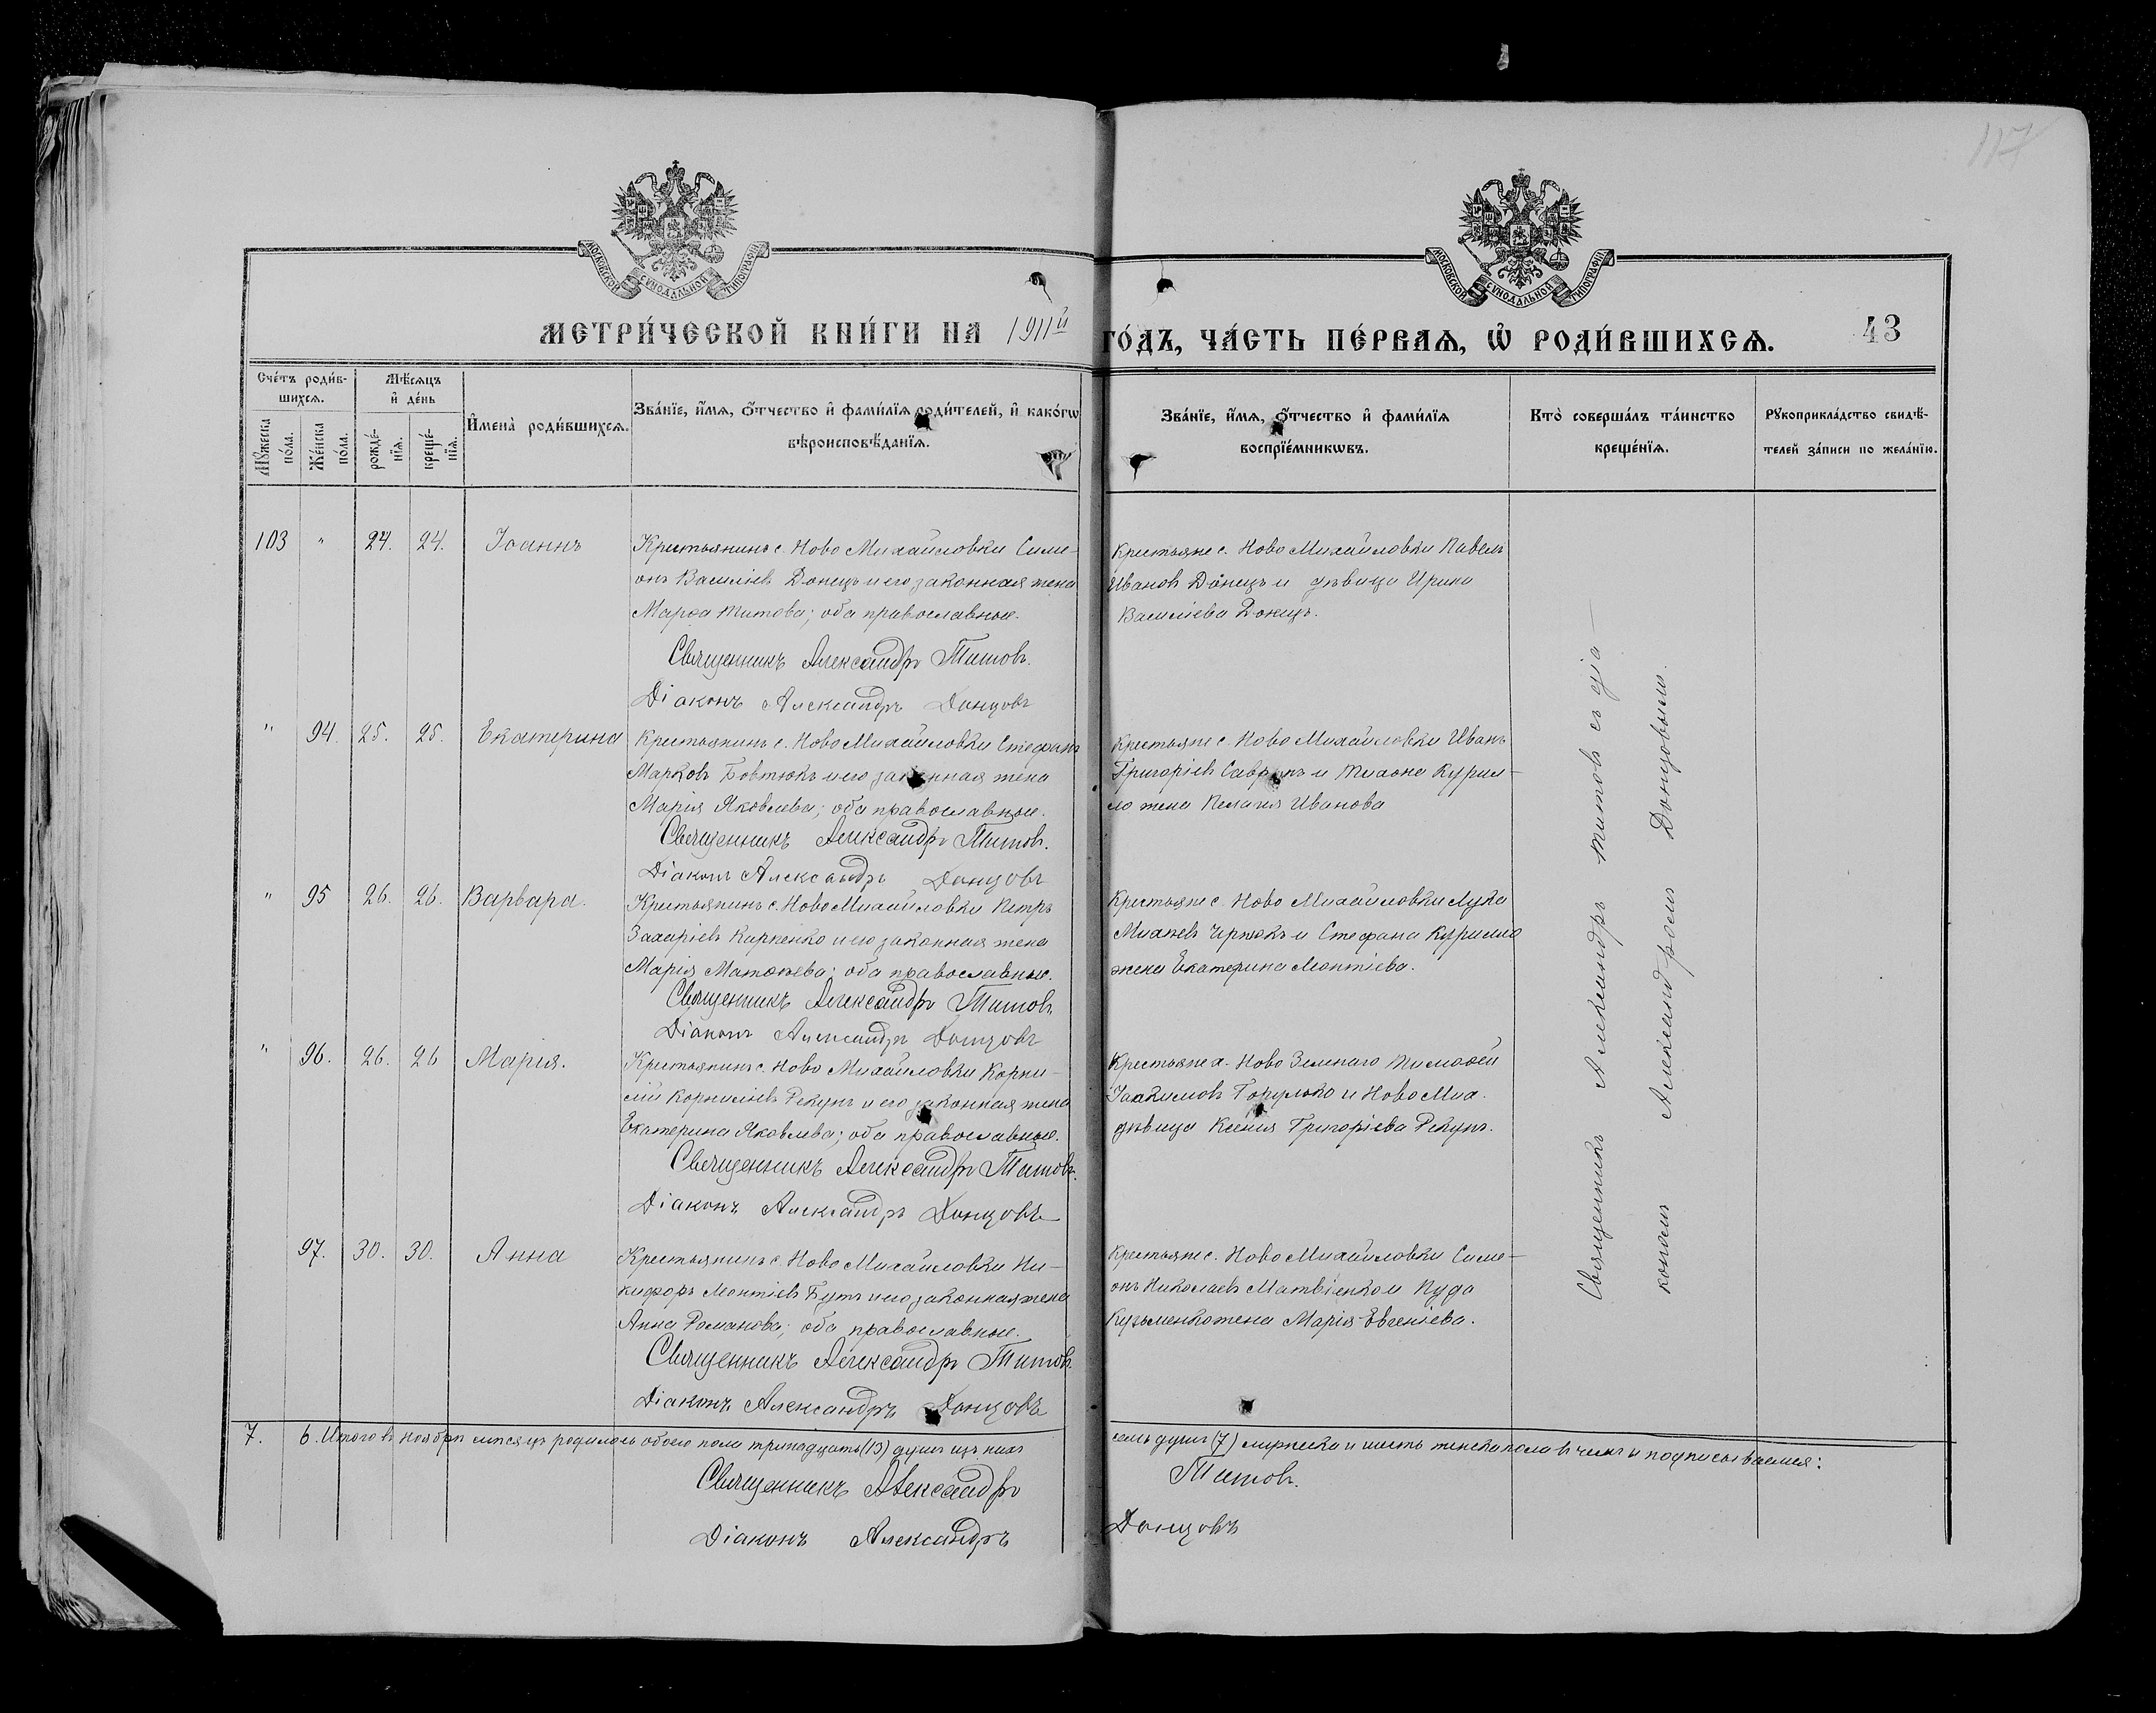 117
МОСКОВСКОЙ СѴНОДАЛЬНОЙ ТИПОГРАФІИ
МОСКОВСКОЙ СѴНОДАЛЬНОЙ ТИПОГРАФІИ
МЕТРИ́ЧЕСКОЙ КНИ́ГИ НА 1911й ГО́ДЪ, ЧА́СТЬ ПЕ́РВАѦ, Ѡ҆ РОДИ́ВШИХСѦ.
43
Сче́тъ роди́в-
шихсѧ.
Мꙋ́жеска по́ла.
Же́нска по́ла.
Мѣ́сѧцъ
и҆ де́нь
рожде́-
нїѧ.
креще́-
нїѧ.
И҆мена̀ роди́вшихсѧ.
Зва́нїе, и҆́мѧ, ѻ҆́тчество и҆ фами́лїѧ роди́телей, и҆ како́гѡ
вѣроисповѣ́данїѧ.
Зва́нїе, и҆́мѧ, ѻ҆́тчество и҆ фами́лїѧ
воспрїе́мникѡвъ.
Кто̀ соверша́лъ та́инство
креще́нїѧ.
Рꙋкоприкла́дство свидѣ́-
телей за́писи по жела́нїю.
103 " 24. 24. Іоаннъ
Крестьянинъ с. Ново Михайловки Симе-
онъ Василіевъ Донецъ и его законная жена
Марѳа Титова; оба православные.
Священникъ Александръ Титовъ.
Діаконъ Александръ Донцовъ
Крестьяне с. Ново Михайловки Павелъ
Ивановъ Донецъ и дѣвица Ирина
Василіева Донецъ.
" 94. 25. 25. Екатерина
Крестьянинъ с. Ново Михайловки Стефанъ
Марковъ Бовтюкъ и его законная жена
Марія Яковлева; оба православные.
Священникъ Александръ Титовъ.
Діаконъ Александръ Донцовъ
Крестьяне с. Ново Михайловки Иванъ
Григоріевъ и Тихона Курил-
ло жена Пелагія Иванова
" 95 26. 26. Варвара.
Крестьянинъ с. Ново Михайловки Петръ
Захаріевъ Кирпенко и его законная жена
Марія Матѳеева; оба православные.
Священникъ Александръ Титовъ.
Діаконъ Александръ Донцовъ
Крестьяне с. Ново Михайловки Лука
и Стефана Курилло
жена Екатерина Леонтіева.
" 96. 26. 26 Марія.
Крестьянинъ с. Ново Михайловки Корни-
лій Корниліевъ Рекунъ и его законная жена
Екатерина Яковлева; оба православные.
Священникъ Александръ Титовъ.
Діаконъ Александръ Донцовъ
Крестьяне х. Ново Зеленаго Тимофей
Іоакимовъ Горулько и Ново Мих.
дѣвица Ксенія Григоріева Рекунъ.
97. 30. 30. Анна
Крестьянинъ с. Ново Михайловки Ни-
кифоръ Леонтіевъ Бутъ и его законная жена
Анна Романова; оба православные.
Священникъ Александръ Титовъ
Діаконъ Александръ Донцовъ
Крестьяне с. Ново Михайловки Симе-
онъ Николаевъ Матвіенко и Пуда
Кузьменко жена Марія Евгеніева.
Священникъ Александръ Титовъ съ діа-
кономъ Александромъ Донцовымъ.
7. 6. Итого въ ноябрѣ мѣсяцѣ родилось обоего пола тринадцать (13) душъ изъ нихъ семь душъ (7) мужеска и шесть женска пола въ чемъ и подписываемся:
Священникъ Александръ Титовъ.
Діаконъ Александръ Донцовъ